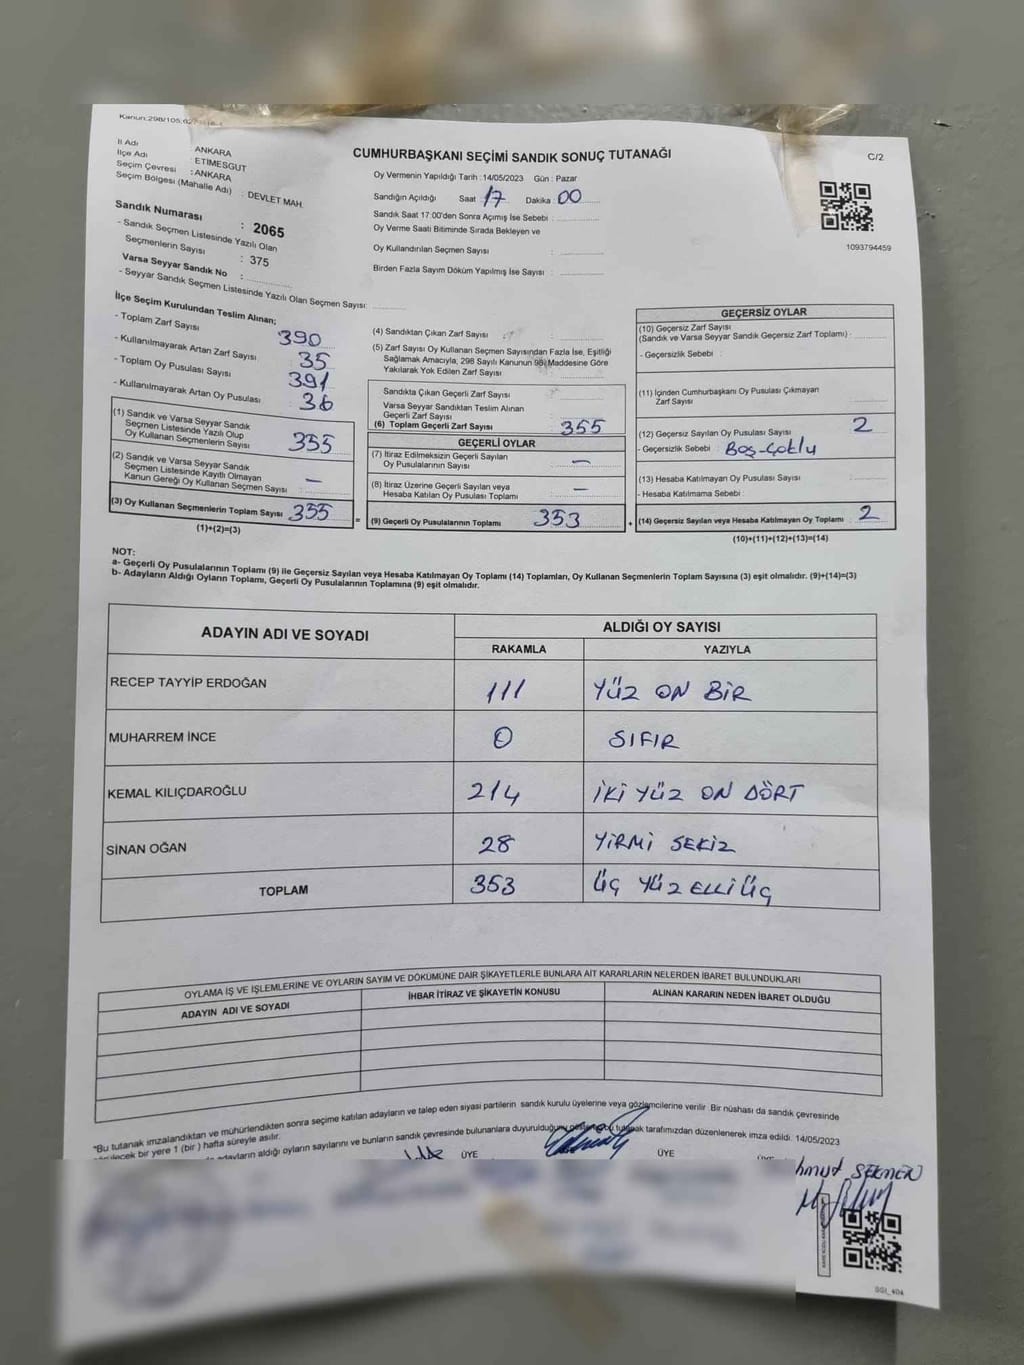 Kanun:298/105;
CUMHURBAŞKANI SEÇİMİ SANDIK SONUÇ TUTANAĞI
C/2
İl Adı : ANKARA
İlçe Adı : ETİMESGUT
Seçim Çevresi : ANKARA
Seçim Bölgesi (Mahalle Adı) : DEVLET MAH.
Sandık Numarası : 2065
- Sandık Seçmen Listesinde Yazılı Olan
Seçmenlerin Sayısı : 375
Varsa Seyyar Sandık No :
- Seyyar Sandık Seçmen Listesinde Yazılı Olan Seçmen Sayısı:
Oy Vermenin Yapıldığı Tarih :14/05/2023 Gün : Pazar
Sandığın Açıldığı Saat 17 Dakika 00
Sandık Saat 17:00'den Sonra Açımış İse Sebebi :
Oy Verme Saati Bitiminde Sırada Bekleyen ve
Oy Kullandırılan Seçmen Sayısı :
Birden Fazla Sayım Döküm Yapılmış İse Sayısı :
1093794459
İlçe Seçim Kurulundan Teslim Alınan;
- Toplam Zarf Sayısı 390
- Kullanılmayarak Artan Zarf Sayısı 35
- Toplam Oy Pusulası Sayısı 391
- Kullanılmayarak Artan Oy Pusulası 36
(1) Sandık ve Varsa Seyyar Sandık
Seçmen Listesinde Yazılı Olup
Oy Kullanan Seçmenlerin Sayısı 355
(2) Sandık ve Varsa Seyyar Sandık
Seçmen Listesinde Kayıtlı Olmayan
Kanun Gereği Oy Kullanan Seçmen Sayısı : —
(3) Oy Kullanan Seçmenlerin Toplam Sayısı 355
(1)+(2)=(3)
(4) Sandıktan Çıkan Zarf Sayısı :
(5) Zarf Sayısı Oy Kullanan Seçmen Sayısından Fazla İse, Eşitliği
Sağlamak Amacıyla, 298 Sayılı Kanunun 98. Maddesine Göre
Yakılarak Yok Edilen Zarf Sayısı :
Sandıkta Çıkan Geçerli Zarf Sayısı :
Varsa Seyyar Sandıktan Teslim Alınan
Geçerli Zarf Sayısı :
(6) Toplam Geçerli Zarf Sayısı : 355
GEÇERLİ OYLAR
(7) İtiraz Edilmeksizin Geçerli Sayılan
Oy Pusulalarının Sayısı : —
(8) İtiraz Üzerine Geçerli Sayılan veya
Hesaba Katılan Oy Pusulası Toplamı : —
= (9) Geçerli Oy Pusulalarının Toplamı 353
GEÇERSİZ OYLAR
(10) Geçersiz Zarf Sayısı
(Sandık ve Varsa Seyyar Sandık Geçersiz Zarf Toplamı) :
- Geçersizlik Sebebi :
(11) İçinden Cumhurbaşkanı Oy Pusulası Çıkmayan
Zarf Sayısı :
(12) Geçersiz Sayılan Oy Pusulası Sayısı : 2
- Geçersizlik Sebebi : Boş-Çoklu
(13) Hesaba Katılmayan Oy Pusulası Sayısı :
- Hesaba Katılmama Sebebi :
+ (14) Geçersiz Sayılan veya Hesaba Katılmayan Oy Toplamı : 2
(10)+(11)+(12)+(13)=(14)
NOT:
a- Geçerli Oy Pusulalarının Toplamı (9) ile Geçersiz Sayılan veya Hesaba Katılmayan Oy Toplamı (14) Toplamları, Oy Kullanan Seçmenlerin Toplam Sayısına (3) eşit olmalıdır. (9)+(14)=(3)
b- Adayların Aldığı Oyların Toplamı, Geçerli Oy Pusulalarının Toplamına (9) eşit olmalıdır.
ADAYIN ADI VE SOYADI ALDIĞI OY SAYISI
RAKAMLA YAZIYLA
RECEP TAYYİP ERDOĞAN 111 YÜZ ON BİR
MUHARREM İNCE 0 SIFIR
KEMAL KILIÇDAROĞLU 214 İKİ YÜZ ON DÖRT
SİNAN OĞAN 28 YİRMİ SEKİZ
TOPLAM 353 ÜÇ YÜZ ELLİ ÜÇ
OYLAMA İŞ VE İŞLEMLERİNE VE OYLARIN SAYIM VE DÖKÜMÜNE DAİR ŞİKAYETLERLE BUNLARA AİT KARARLARIN NELERDEN İBARET BULUNDUKLARI
ADAYIN ADI VE SOYADI İHBAR İTİRAZ VE ŞİKAYETİN KONUSU ALINAN KARARIN NEDEN İBARET OLDUĞU
*Bu tutanak imzalandıktan ve mühürlendikten sonra seçime katılan adayların ve talep eden siyasi partilerin sandık kurulu üyelerine veya gözlemcilerine verilir. Bir nüshası da sandık çevresinde
bir yere 1 (bir) hafta süreyle asılır.
adayların aldığı oyların sayılarını ve bunların sandık çevresinde bulunanlara duyurulduğunu tutanak tarafımızdan düzenlenerek imza edildi. 14/05/2023
ÜYE ÜYE
SEKMEN